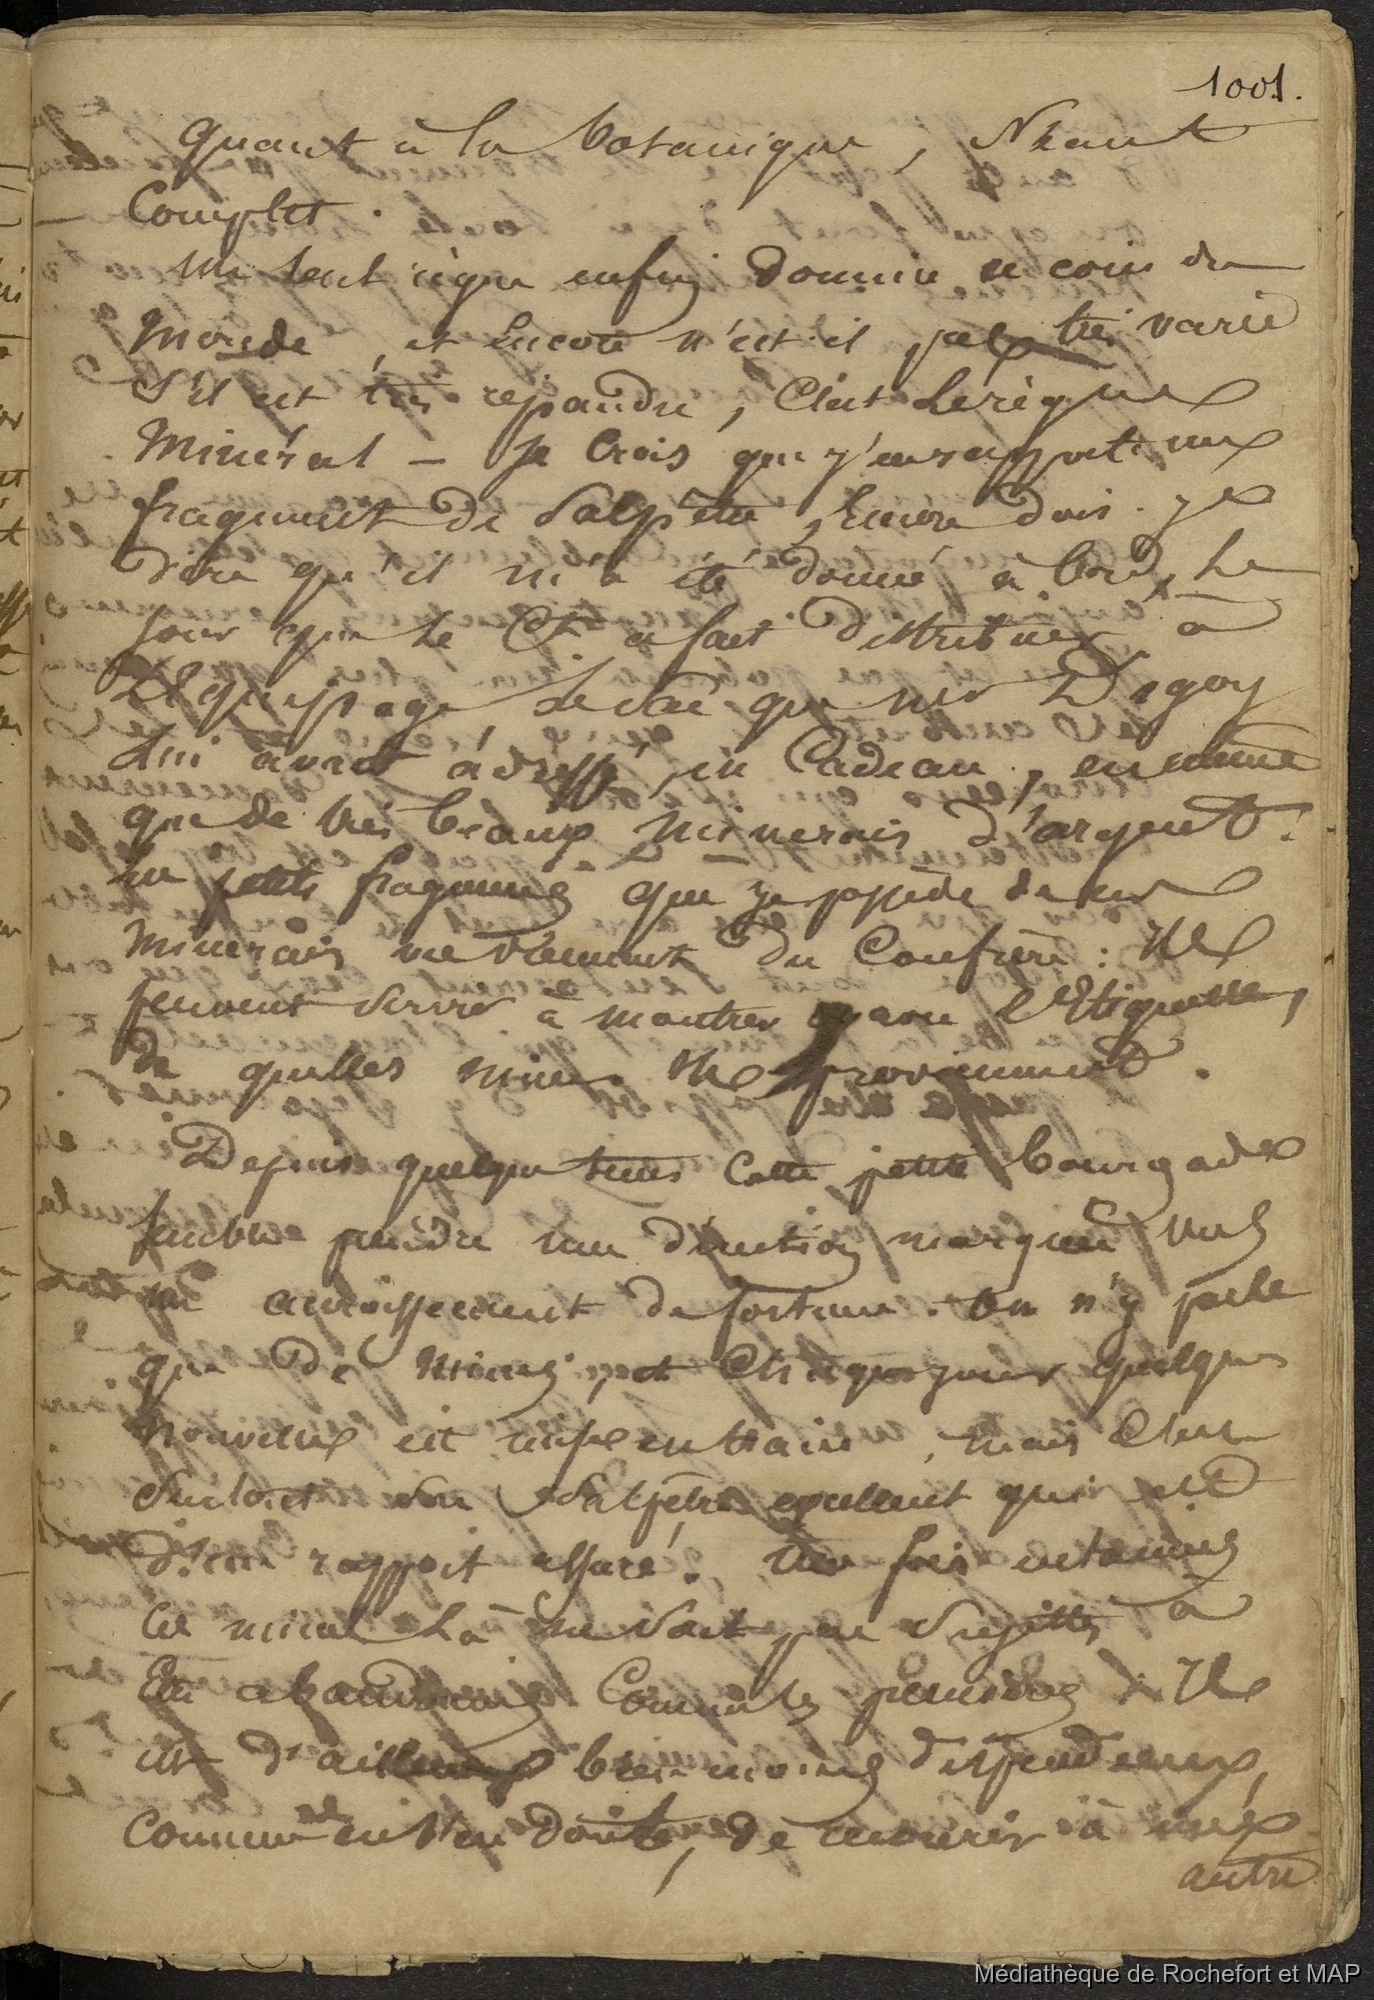 1001.
Quant à la botanique, Néant
Complet.
Un seul règne enfin domine ce coin du
Monde, et encore n'est il pas très varié
S'il est très répandu, C'est le règne
Minéral — Je crois que j'en rapporte un
fragment de Salpêtre, encore dois-je
dire qu'il m'a été donné à bord, le
jour que le Ct a fait distribuer à
l'Equipage le sac que Mr Digoy
lui avait adressé en Cadeau, en même
que de très beaux minerais d'argent.
Les petits fragments que je possède de ces
Minerais me viennent du Confrère : Ils
peuvent servir à montrer avec l'Etiquette,
de quelles mines Ils proviennent.
Depuis quelque tems cette petite bourgade
semble prendre une direction marquée vers
un accroissement de fortune. On n'y parle
que de Mines, et chaque jour quelques
nouvelles est mise en train, mais c'est
surtout du Salpêtre excellent qui est
d'un rapport assuré. Une fois entamées
ces mines là ne sont pas sujettes à
être abandonnées Comme les premières : Il
est d'ailleurs bien moins dispendieux,
comme on s'en doute, de mourir à une
autre
Médiathèque de Rochefort et MAP